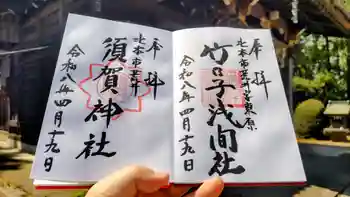 奉拝
北本市荒井
須賀神社
令和八年四月十九日
奉拝
北本市荒井字東原
竹之子浅間社
令和八年四月十九日